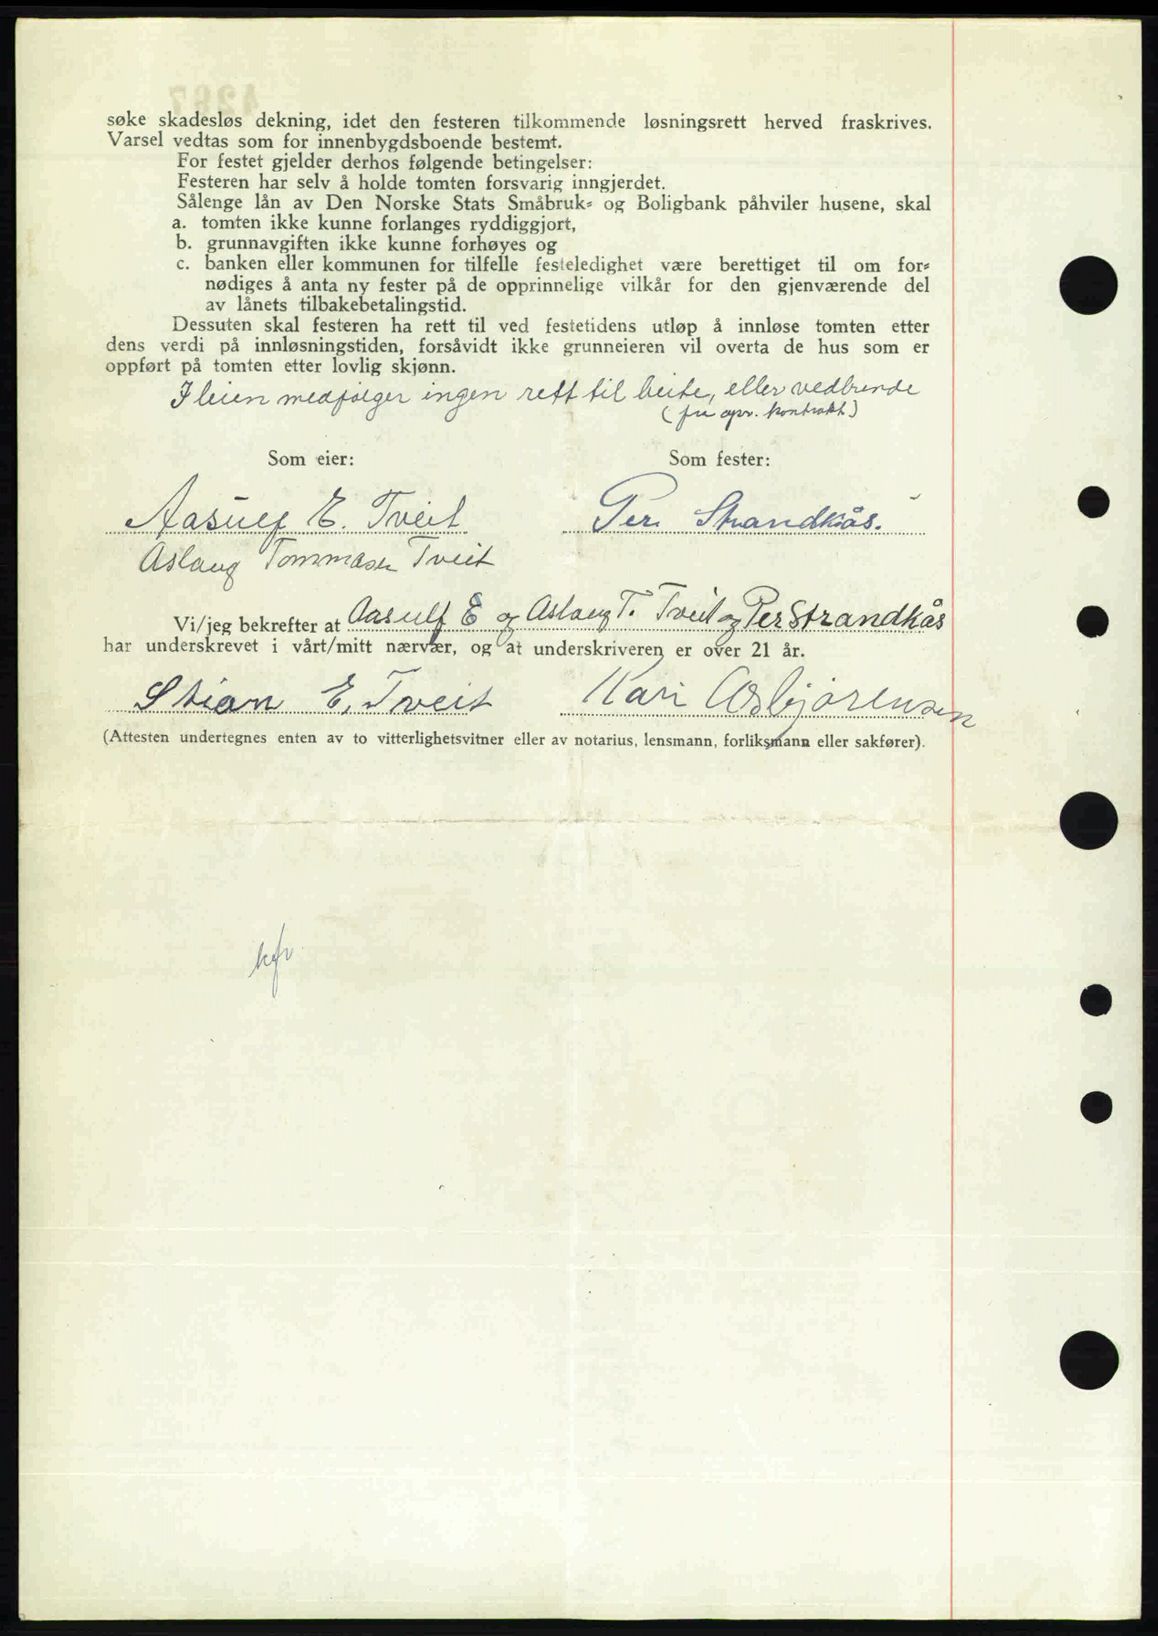 søke skadesløs dekning, idet den festeren tilkommende løsningsrett herved fraskrives.
Varsel vedtas som for innenbygdsboende bestemt.
For festet gjelder derhos følgende betingelser:
Festeren har selv å holde tomten forsvarig inngjerdet.
Sålenge lån av Den Norske Stats Småbruk- og Boligbank påhviler husene, skal
a. tomten ikke kunne forlanges ryddiggjort,
b. grunnavgiften ikke kunne forhøyes og
c. banken eller kommunen for tilfelle festeledighet være berettiget til om for-
nødiges å anta ny fester på de opprinnelige vilkår for den gjenværende del
av lånets tilbakebetalingstid.
Dessuten skal festeren ha rett til ved festetidens utløp å innløse tomten etter
dens verdi på innløsningstiden, forsåvidt ikke grunneieren vil overta de hus som er
oppført på tomten etter lovlig skjønn.
I leien medfølger ingen rett til beite, eller vedbrende
opr. kontrakt)
Som eier:
Som fester:
Aasulf E. Tveit
Per Strandkås.
Aslaug Tommasn Tveit
Vi/jeg bekrefter at Aasulf E og Aslaug T. Tveit og Per Strandkås
har underskrevet i vårt/mitt nærvær, og at underskriveren er over 21 år.
Stian E. Tveit
Kari Asbjørensen
(Attesten undertegnes enten av to vitterlighetsvitner eller av notarius, lensmann, forliksmann eller sakfører).